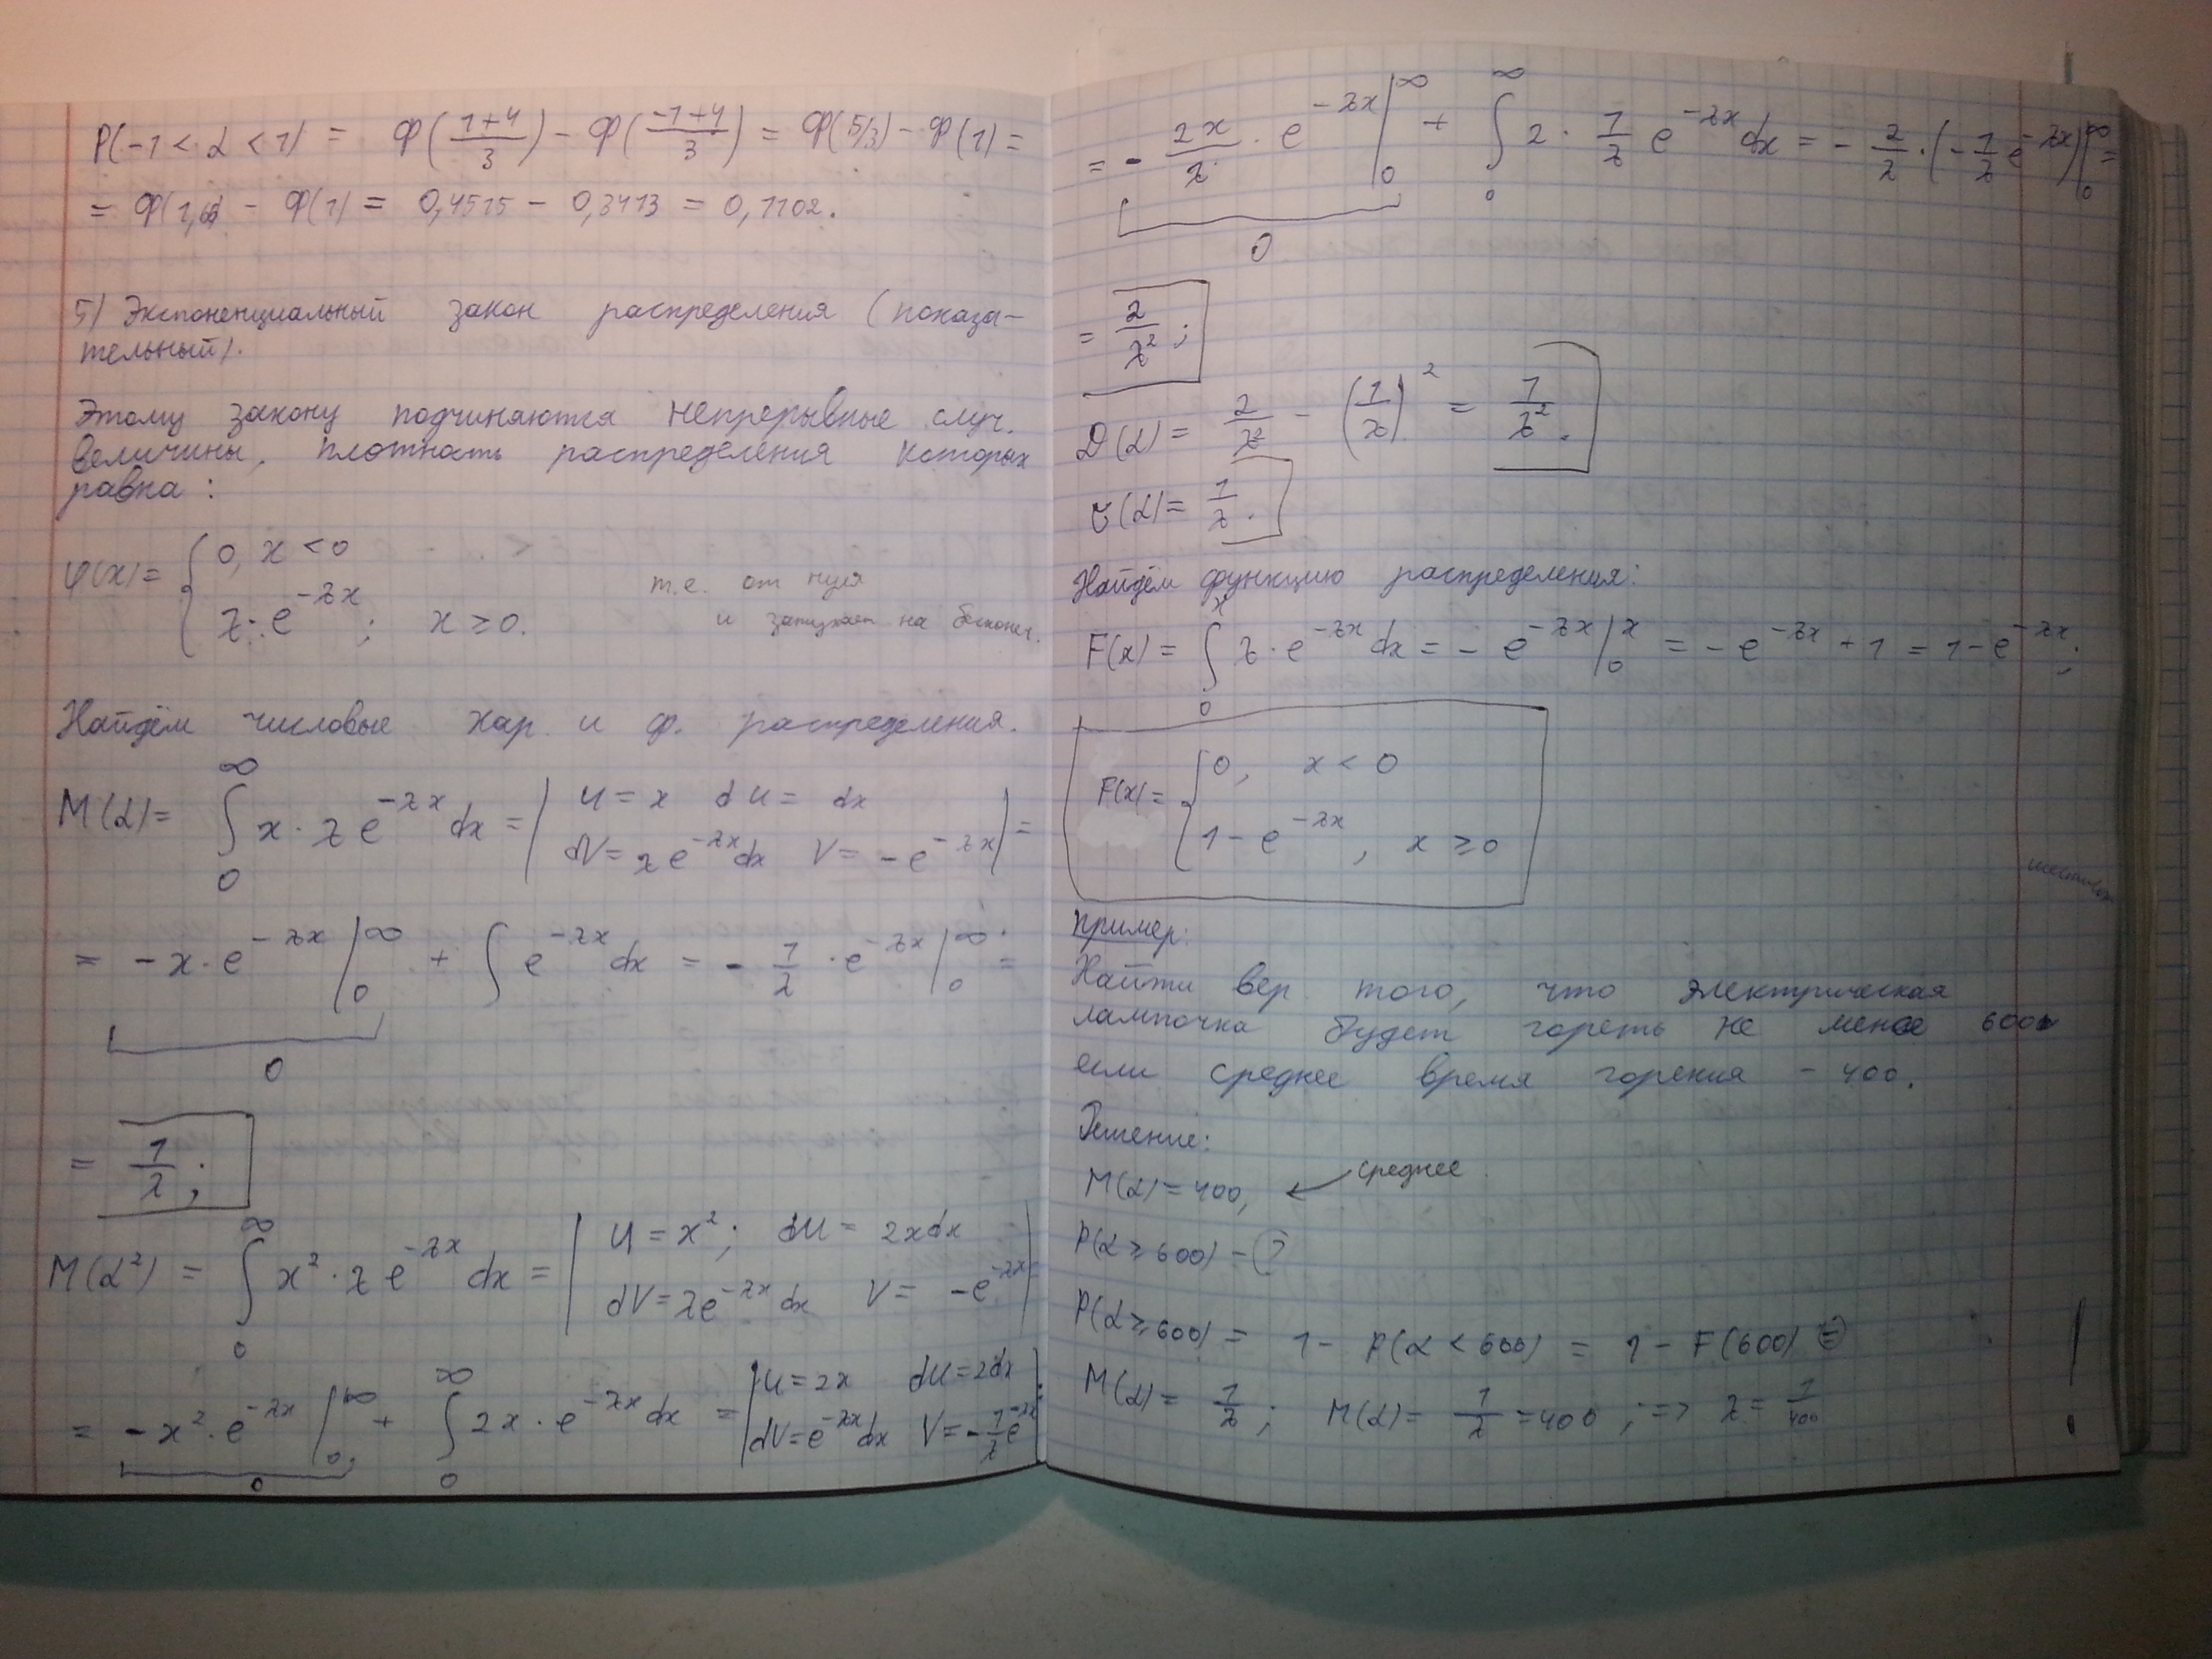 P(-1 < α < 1) = Φ((1+4)/3) - Φ((-1+4)/3) = Φ(5/3) - Φ(1) =
= Φ(1,66) - Φ(1) = 0,4515 - 0,3413 = 0,1102.
5) Экспоненциальный закон распределения (показа-
тельный).
Этому закону подчиняются непрерывные случ.
величины, плотность распределения которых
равна:
φ(x) = { 0, x < 0
λ·e^(-λx); x ≥ 0.
т.е. от нуля
и запускает на бесконеч.
Найдём числовые хар. и ф. распределения.
M(α) = ∫₀^∞ x·λe^(-λx)dx = | u = x du = dx
dV = λe^(-λx)dx V = -e^(-λx) | =
= -x·e^(-λx) |₀^∞ + ∫ e^(-λx)dx = - 1/λ · e^(-λx) |₀^∞ =
0
= 1/λ;
M(α²) = ∫₀^∞ x²·λe^(-λx)dx = | u = x²; du = 2xdx
dV = λe^(-λx)dx V = -e^(-λx) | =
= -x²·e^(-λx) |₀^∞ + ∫₀^∞ 2x·e^(-λx)dx = | u = 2x du = 2dx
dV = e^(-λx)dx V = -1/λ e^(-λx) |
0
= - 2x/λ · e^(-λx) |₀^∞ + ∫₀^∞ 2 · 1/λ e^(-λx)dx = - 2/λ · (-1/λ e^(-λx)) |₀^∞ =
0
= 2/λ²;
D(α) = 2/λ² - (1/λ)² = 1/λ².
σ(α) = 1/λ.
Найдём функцию распределения:
F(x) = ∫₀^x λ·e^(-λx)dx = -e^(-λx) |₀^x = -e^(-λx) + 1 = 1-e^(-λx);
F(x) = { 0, x < 0
1 - e^(-λx), x ≥ 0
Пример:
Найти вер. того, что электрическая
лампочка будет гореть не менее 600
если среднее время горения - 400.
Решение:
M(α) = 400, ← среднее
P(α ≥ 600) - ?
P(α ≥ 600) = 1 - P(α < 600) = 1 - F(600) =
M(α) = 1/λ; M(α) = 1/λ = 400; => λ = 1/400